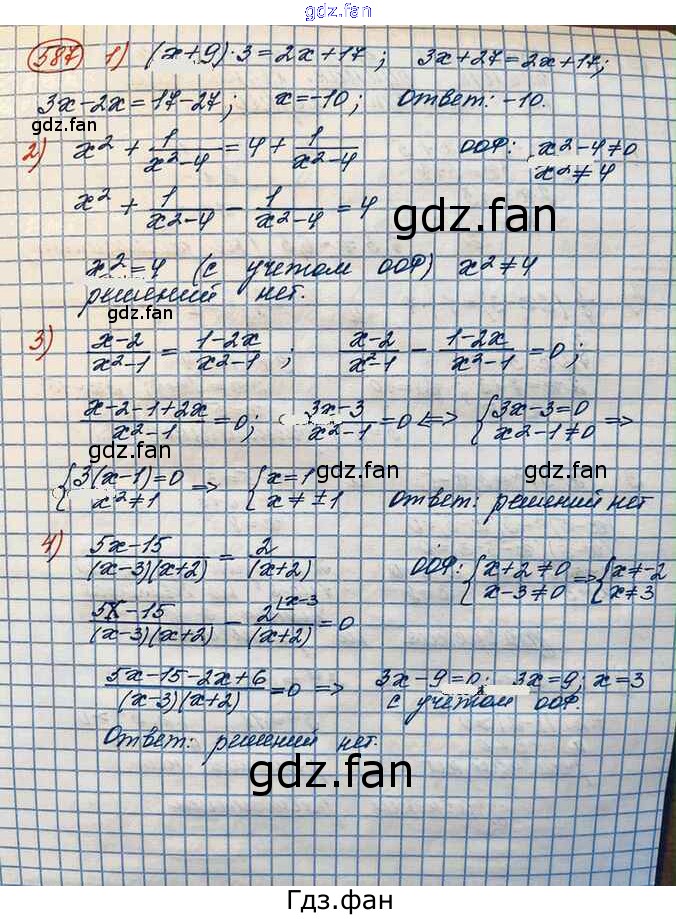 gdz.fan
587 1) (x+9)·3=2x+17; 3x+27=2x+17;
3x-2x=17-27; x=-10; Ответ: -10.
gdz.fan gdz.fan
2) x² + 1/(x²-4) = 4 + 1/(x²-4) ООФ: x²-4≠0
x²≠4
x² + 1/(x²-4) - 1/(x²-4) = 4
gdz.fan
x²=4 (с учетом ООФ) x²≠4
решений нет.
gdz.fan
3) (x-2)/(x²-1) = (1-2x)/(x²-1); (x-2)/(x²-1) - (1-2x)/(x²-1) = 0;
(x-2-1+2x)/(x²-1) = 0; (3x-3)/(x²-1) = 0 <=> {3x-3=0 x²-1≠0 =>
gdz.fan
{3(x-1)=0 x²≠1 => {x=1 x≠±1 Ответ: решений нет
gdz.fan gdz.fan
4) (5x-15)/((x-3)(x+2)) = 2/(x+2) ООФ: {x+2≠0 x-3≠0 => {x≠-2 x≠3
gdz.fan gdz.fan
(5x-15)/((x-3)(x+2)) - 2/(x+2) |x-3 = 0
(5x-15-2x+6)/((x-3)(x+2)) = 0 => 3x-9=0; 3x=9; x=3
gdz.fan
с учетом ООФ.
Ответ: решений нет.
gdz.fan
gdz.fan
Гдз.фан